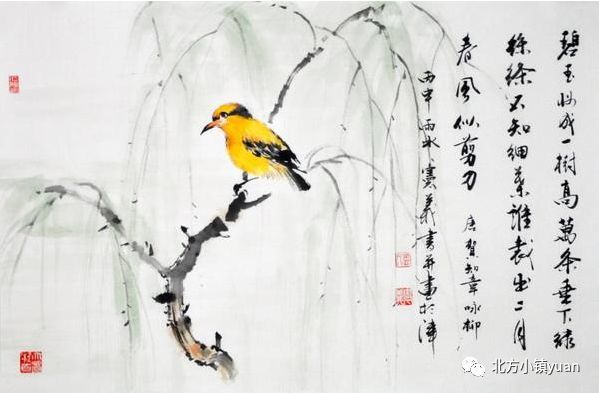 碧玉妆成一樹高萬条垂下绿
絲絛不知細葉誰裁出二月
春風似剪刀 唐賀知章咏柳
丙申雨水 義書并畫於津
北方小镇yuan